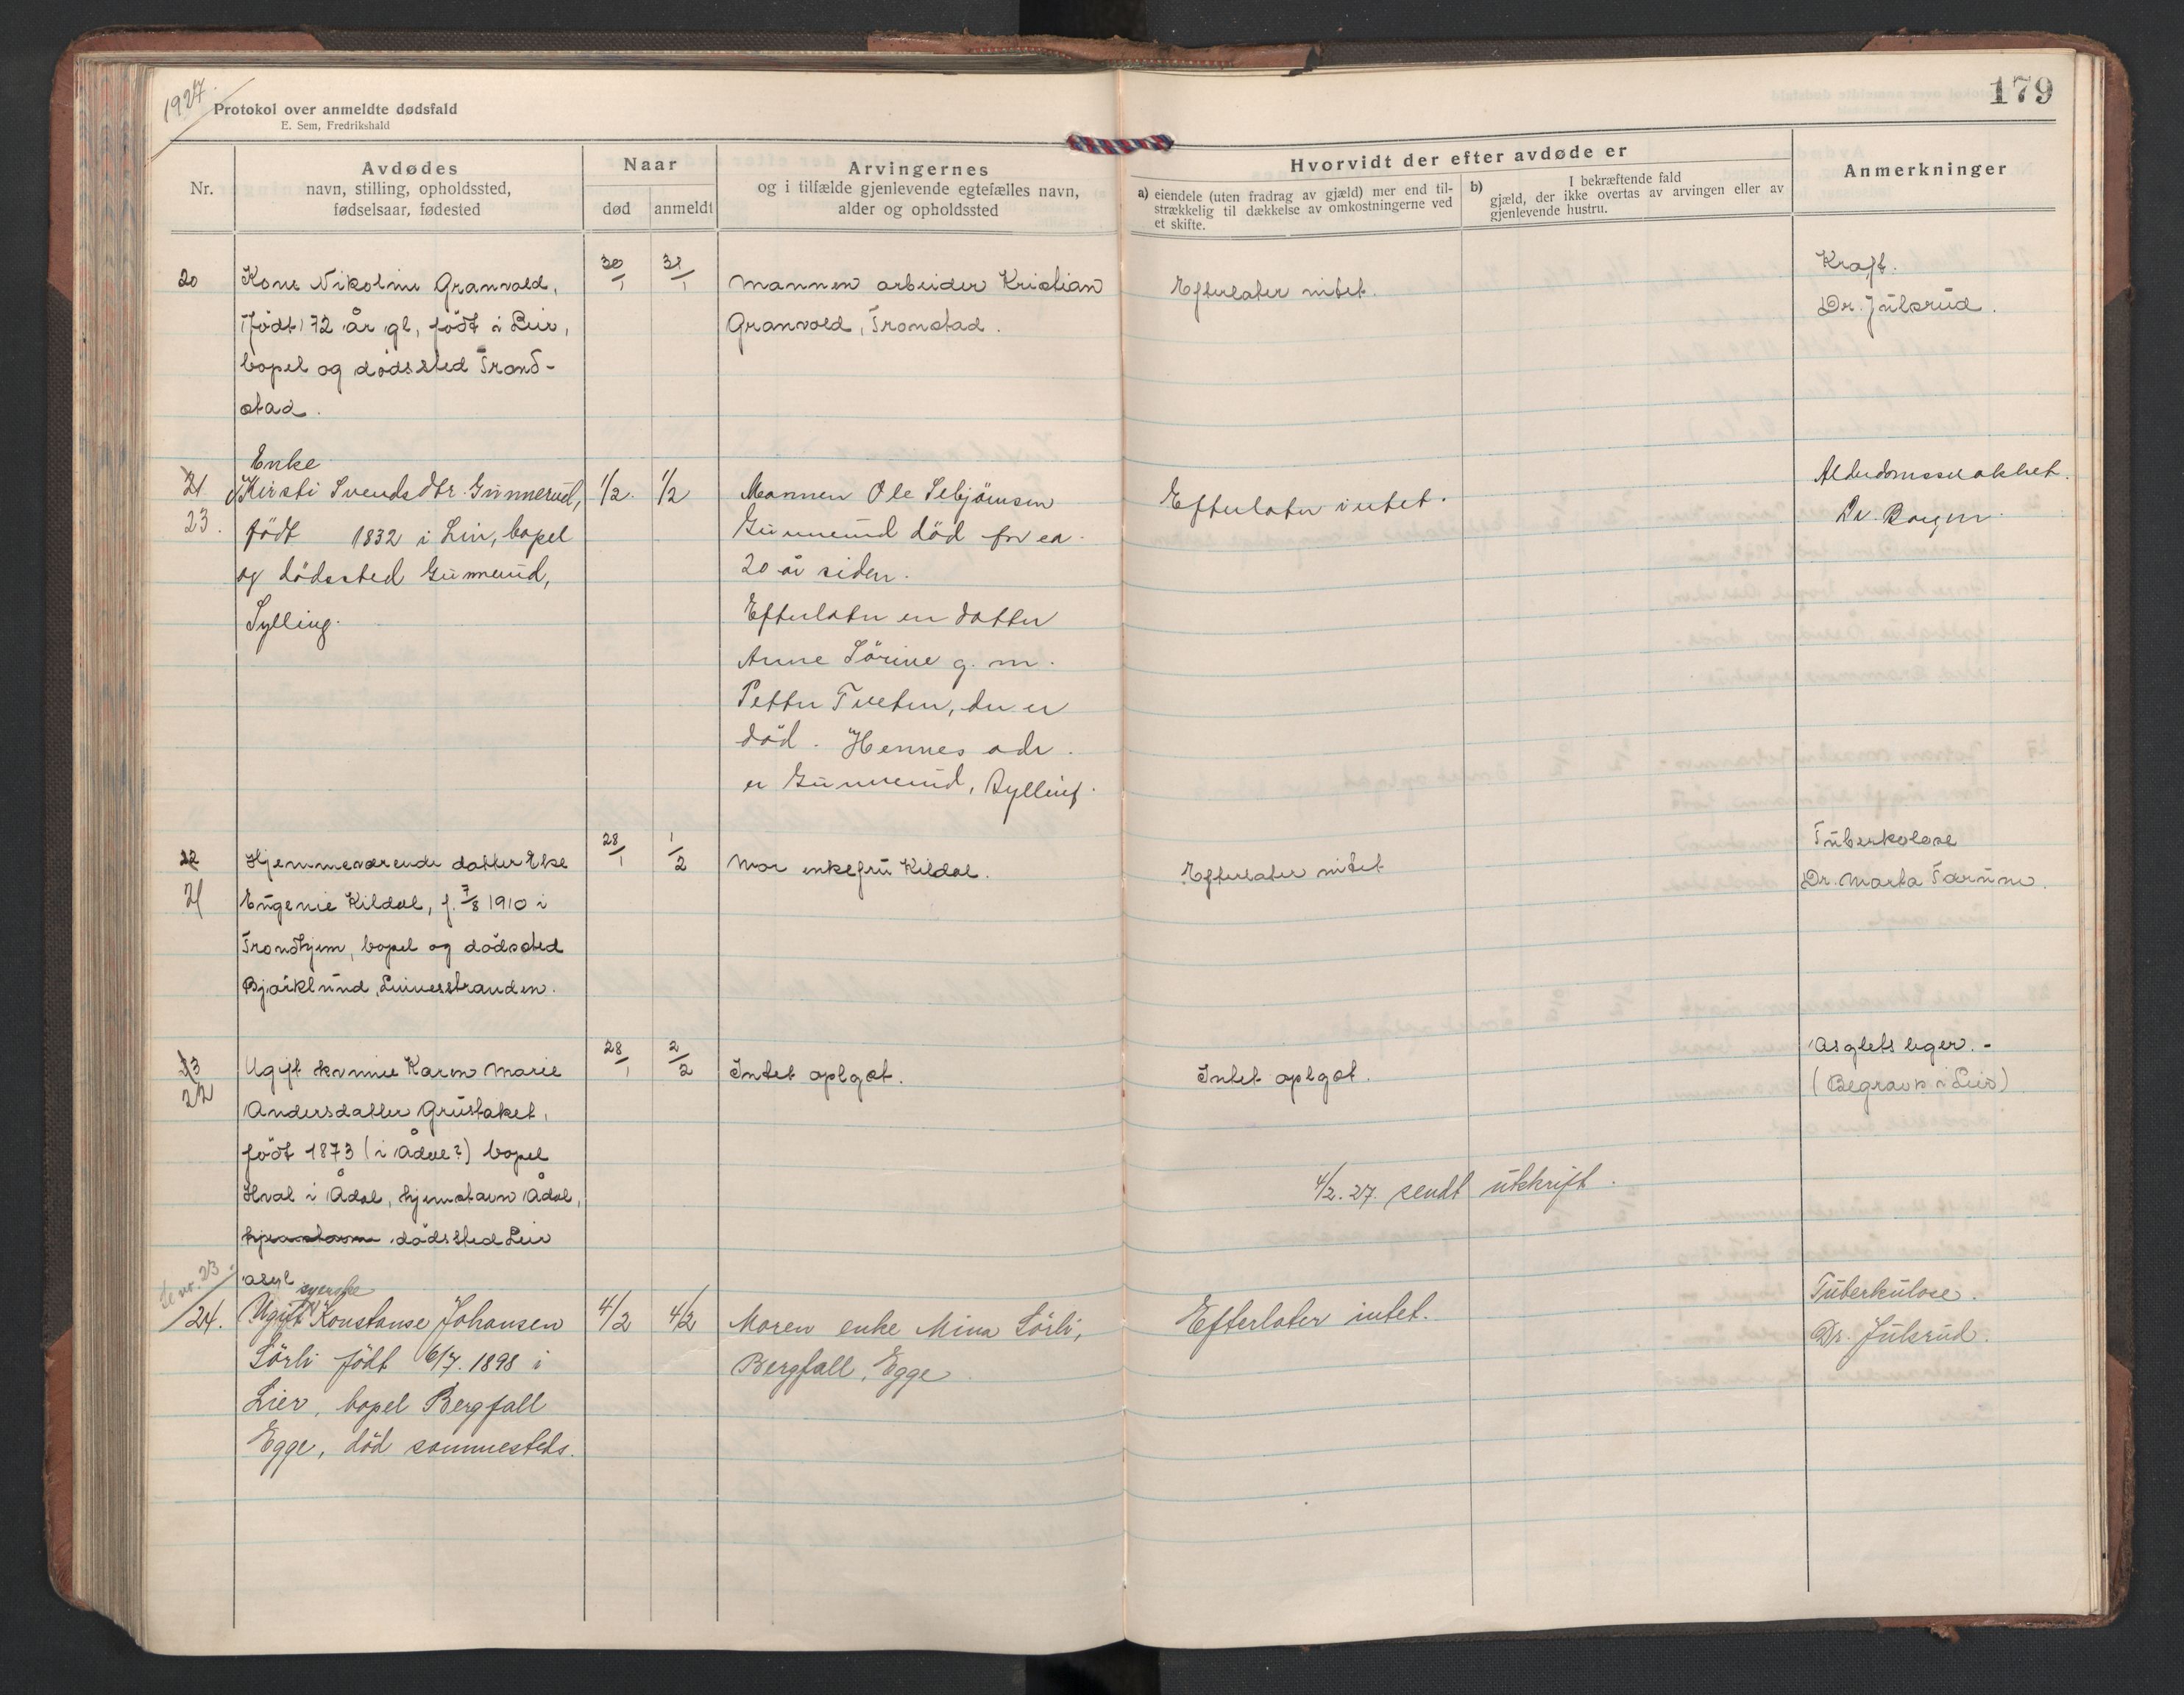 1927.
Protokol over anmeldte dødsfald
E. Sem, Fredrikshald
179
Nr.
Avdødes
navn, stilling, opholdssted,
fødselsaar, fødested
Naar
død
anmeldt
Arvingernes
og i tilfælde gjenlevende egtefælles navn,
alder og opholdssted
Hvorvidt der efter avdøde er
a) eiendele (uten fradrag av gjæld) mer end til-
strækkelig til dækkelse av omkostningerne ved
et skifte.
b) I bekræftende fald
gjæld, der ikke overtas av arvingen eller av
gjenlevende hustru.
Anmerkninger
20
Kone Nikoline Granvold,
født 72 år gl, født i Lier,
bopel og dødssted Trond-
stad.
30/1
31/1
Mannen arbeider Kristian
Granvold, Tronstad.
Efterlater intet.
Kraft.
Dr. Julsrud.
21
23.
Enke
Kirsti Svendsdtr. Gunnerud,
født 1832 i Lier, bopel
og dødssted Gunnerud,
Sylling.
1/2.
1/2
Mannen Ole Sebjørnsen
Gunnerud död for ca.
20 år siden.
Efterlater en datter
Anne Sörine g. m.
Petter Tveten, der er
död. Hennes adr.
er Gunnerud, Sylling.
Efterlater intet.
Alderdomssvakhet.
Dr. Borgen.
22
21
Hjemmeværende datter Else
Eugenie Kildal, f. 7/8 1910 i
Trondhjem, bopel og dødssted
Bjørklund, Lierstranden.
28/1
1/2
Mor enkefru Kildal.
Efterlater intet
Tuberkolose
Dr. Marta
23
22
Ugift kvinne Karen Marie
Andersdatter Grustaket,
født 1873 (i Ådal?) bopel
Hval i Ådal, hjemstavn Ådal,
hjemstavn dødssted Lier
asyl
28/1
2/2
Intet oplyst.
Intet oplyst.
Asylets leger. -
(Begraves i Lier)
4/2. 27. sendt utskrift.
Se nr. 23.
24.
syerske
Ugift Konstanse Johansen
Sörli født 6/7. 1898 i
Lier, bopel Bergfall
Egge, död sammesteds.
4/2
4/2
Moren enke Mina Sörli,
Bergfall, Egge.
Efterlater intet.
Tuberkulose.
Dr. Julsrud.